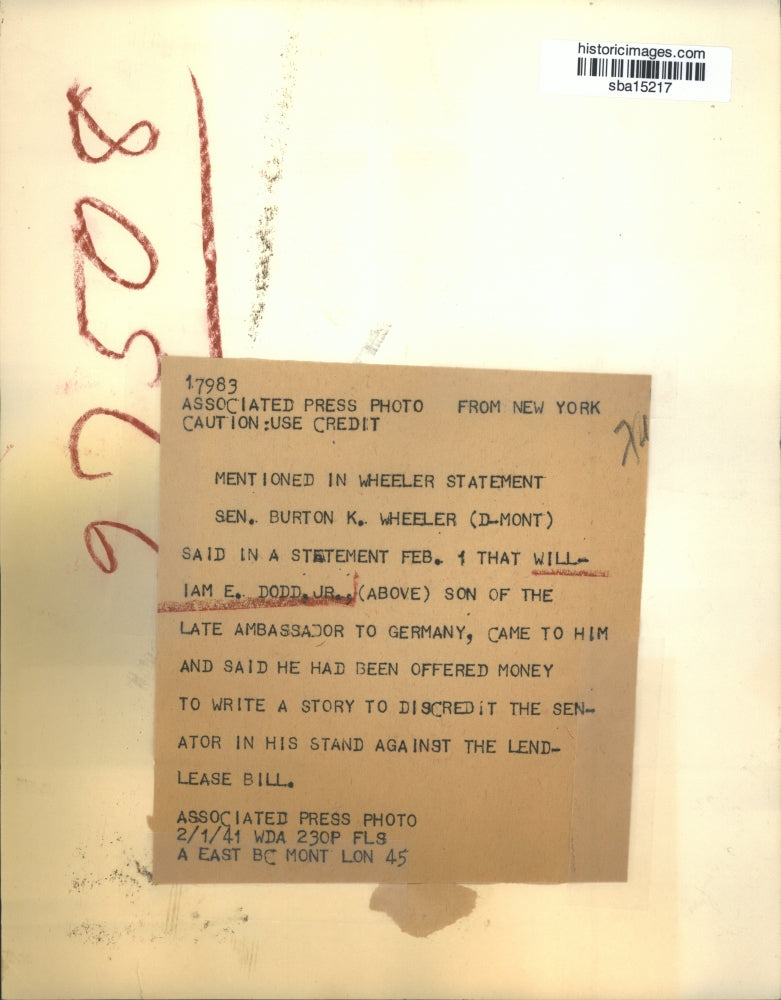 historicimages.com
sba15217
97508
17983
ASSOCIATED PRESS PHOTO FROM NEW YORK
CAUTION:USE CREDIT
MENTIONED IN WHEELER STATEMENT
SEN. BURTON K. WHEELER (D-MONT)
SAID IN A STATEMENT FEB. 1 THAT WILL-
IAM E. DODD, JR., (ABOVE) SON OF THE
LATE AMBASSADOR TO GERMANY, CAME TO HIM
AND SAID HE HAD BEEN OFFERED MONEY
TO WRITE A STORY TO DISCREDIT THE SEN-
ATOR IN HIS STAND AGAINST THE LEND-
LEASE BILL.
ASSOCIATED PRESS PHOTO
2/1/41 WDA 230P FLS
A EAST BC MONT LON 45